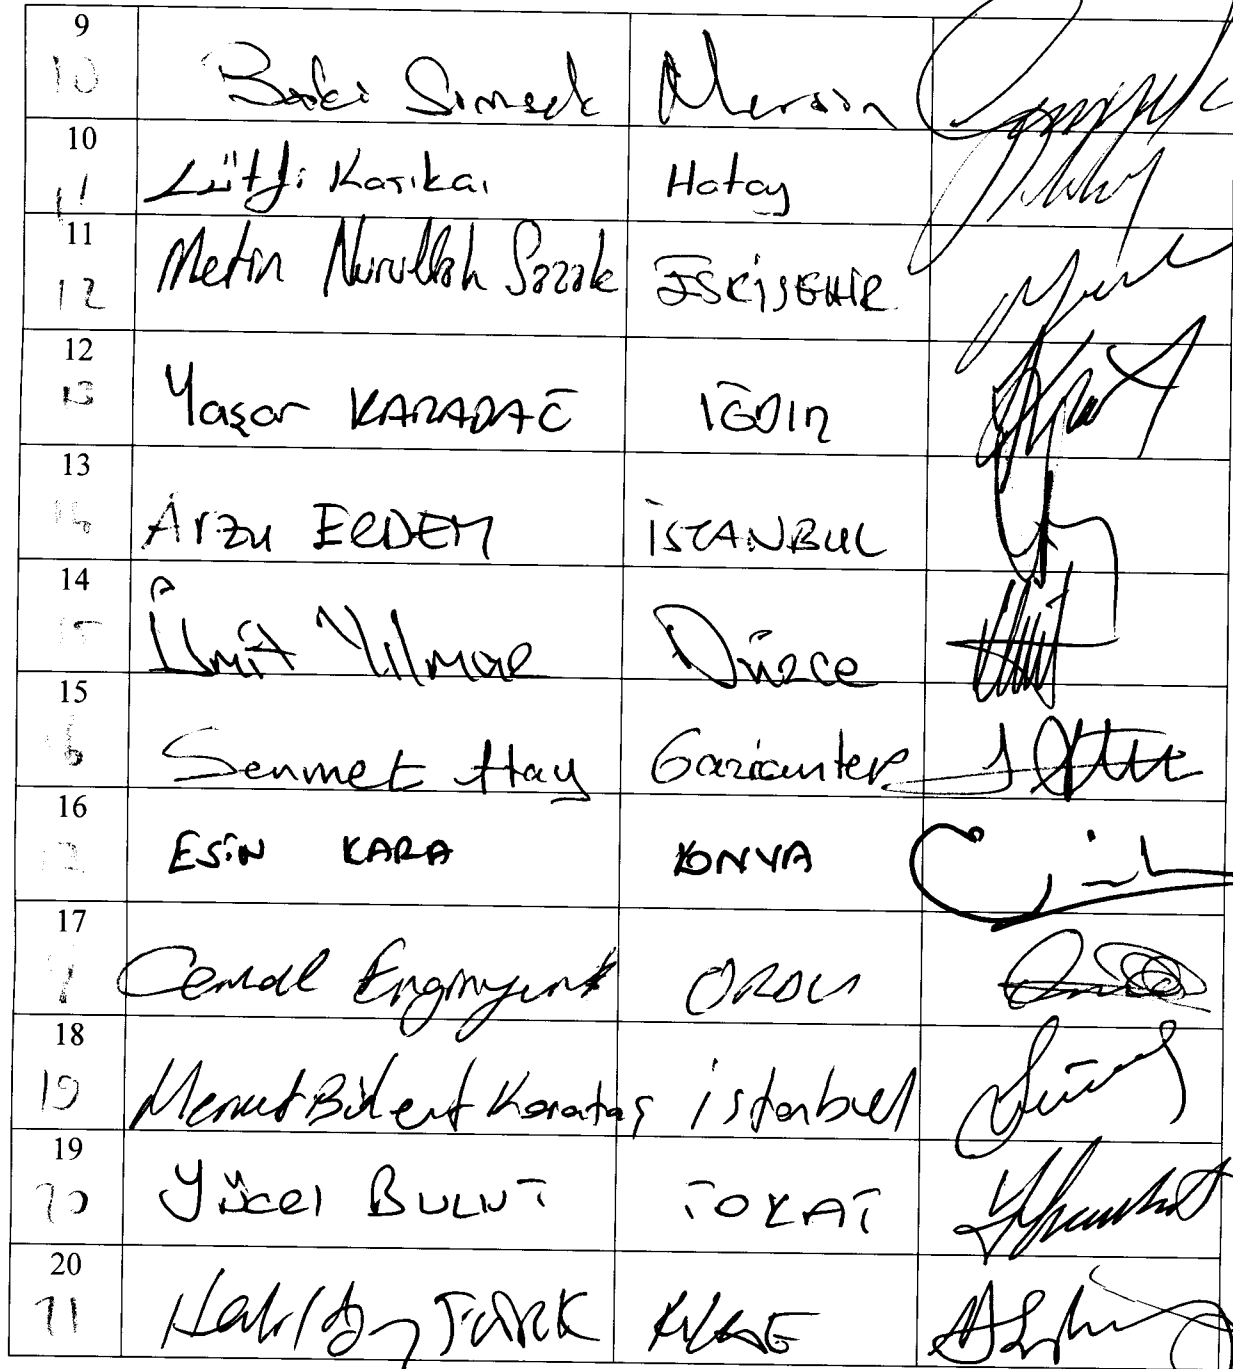 9
10 Baki Şimşek Mersin
10
11 Lütfi Kaşıkçı Hatay
11
12 Metin Nurullah Sazak ESKİŞEHİR
12
13 Yaşar KARADAĞ IĞDIR
13
14 Arzu ERDEM İSTANBUL
14
15 Ümit Yılmaz Düzce
15
16 Sermet Atay Gaziantep
16
ESİN KARA KONYA
17
Cemal Enginyurt ORDU
18
19 Memet Bülent Karataş istanbul
19
20 Yücel BULUT TOKAT
20
21 TÜRK